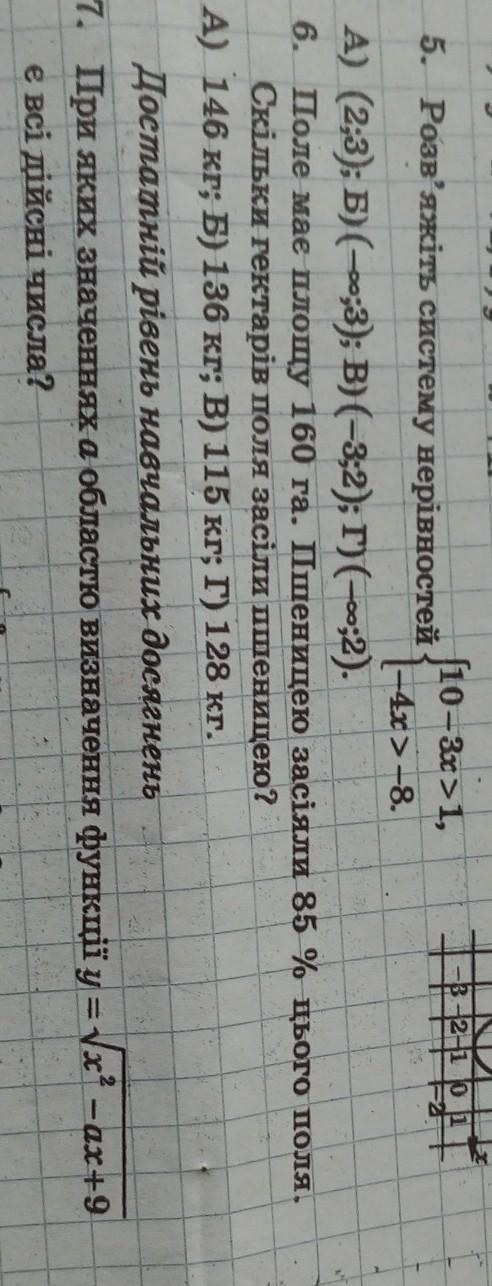 -3 -2 -1 0 1 x
-2
5. Розв'яжіть систему нерівностей {10 – 3x > 1,
–4x > –8.
А) (2;3); Б) (–∞;3); В) (–3;2); Г) (–∞;2).
6. Поле має площу 160 га. Пшеницею засіяли 85 % цього поля.
Скільки гектарів поля засіли пшеницею?
А) 146 кг; Б) 136 кг; В) 115 кг; Г) 128 кг.
Достатній рівень навчальних досягнень
7. При яких значеннях a областю визначення функції y = √(x² – ax + 9)
є всі дійсні числа?